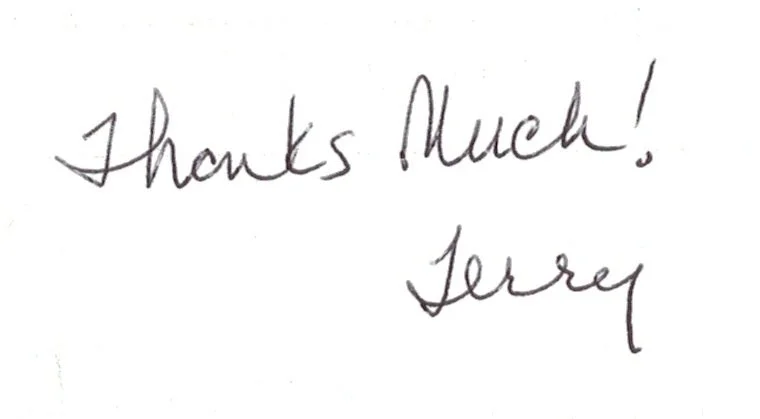 Thanks Much!
Terry